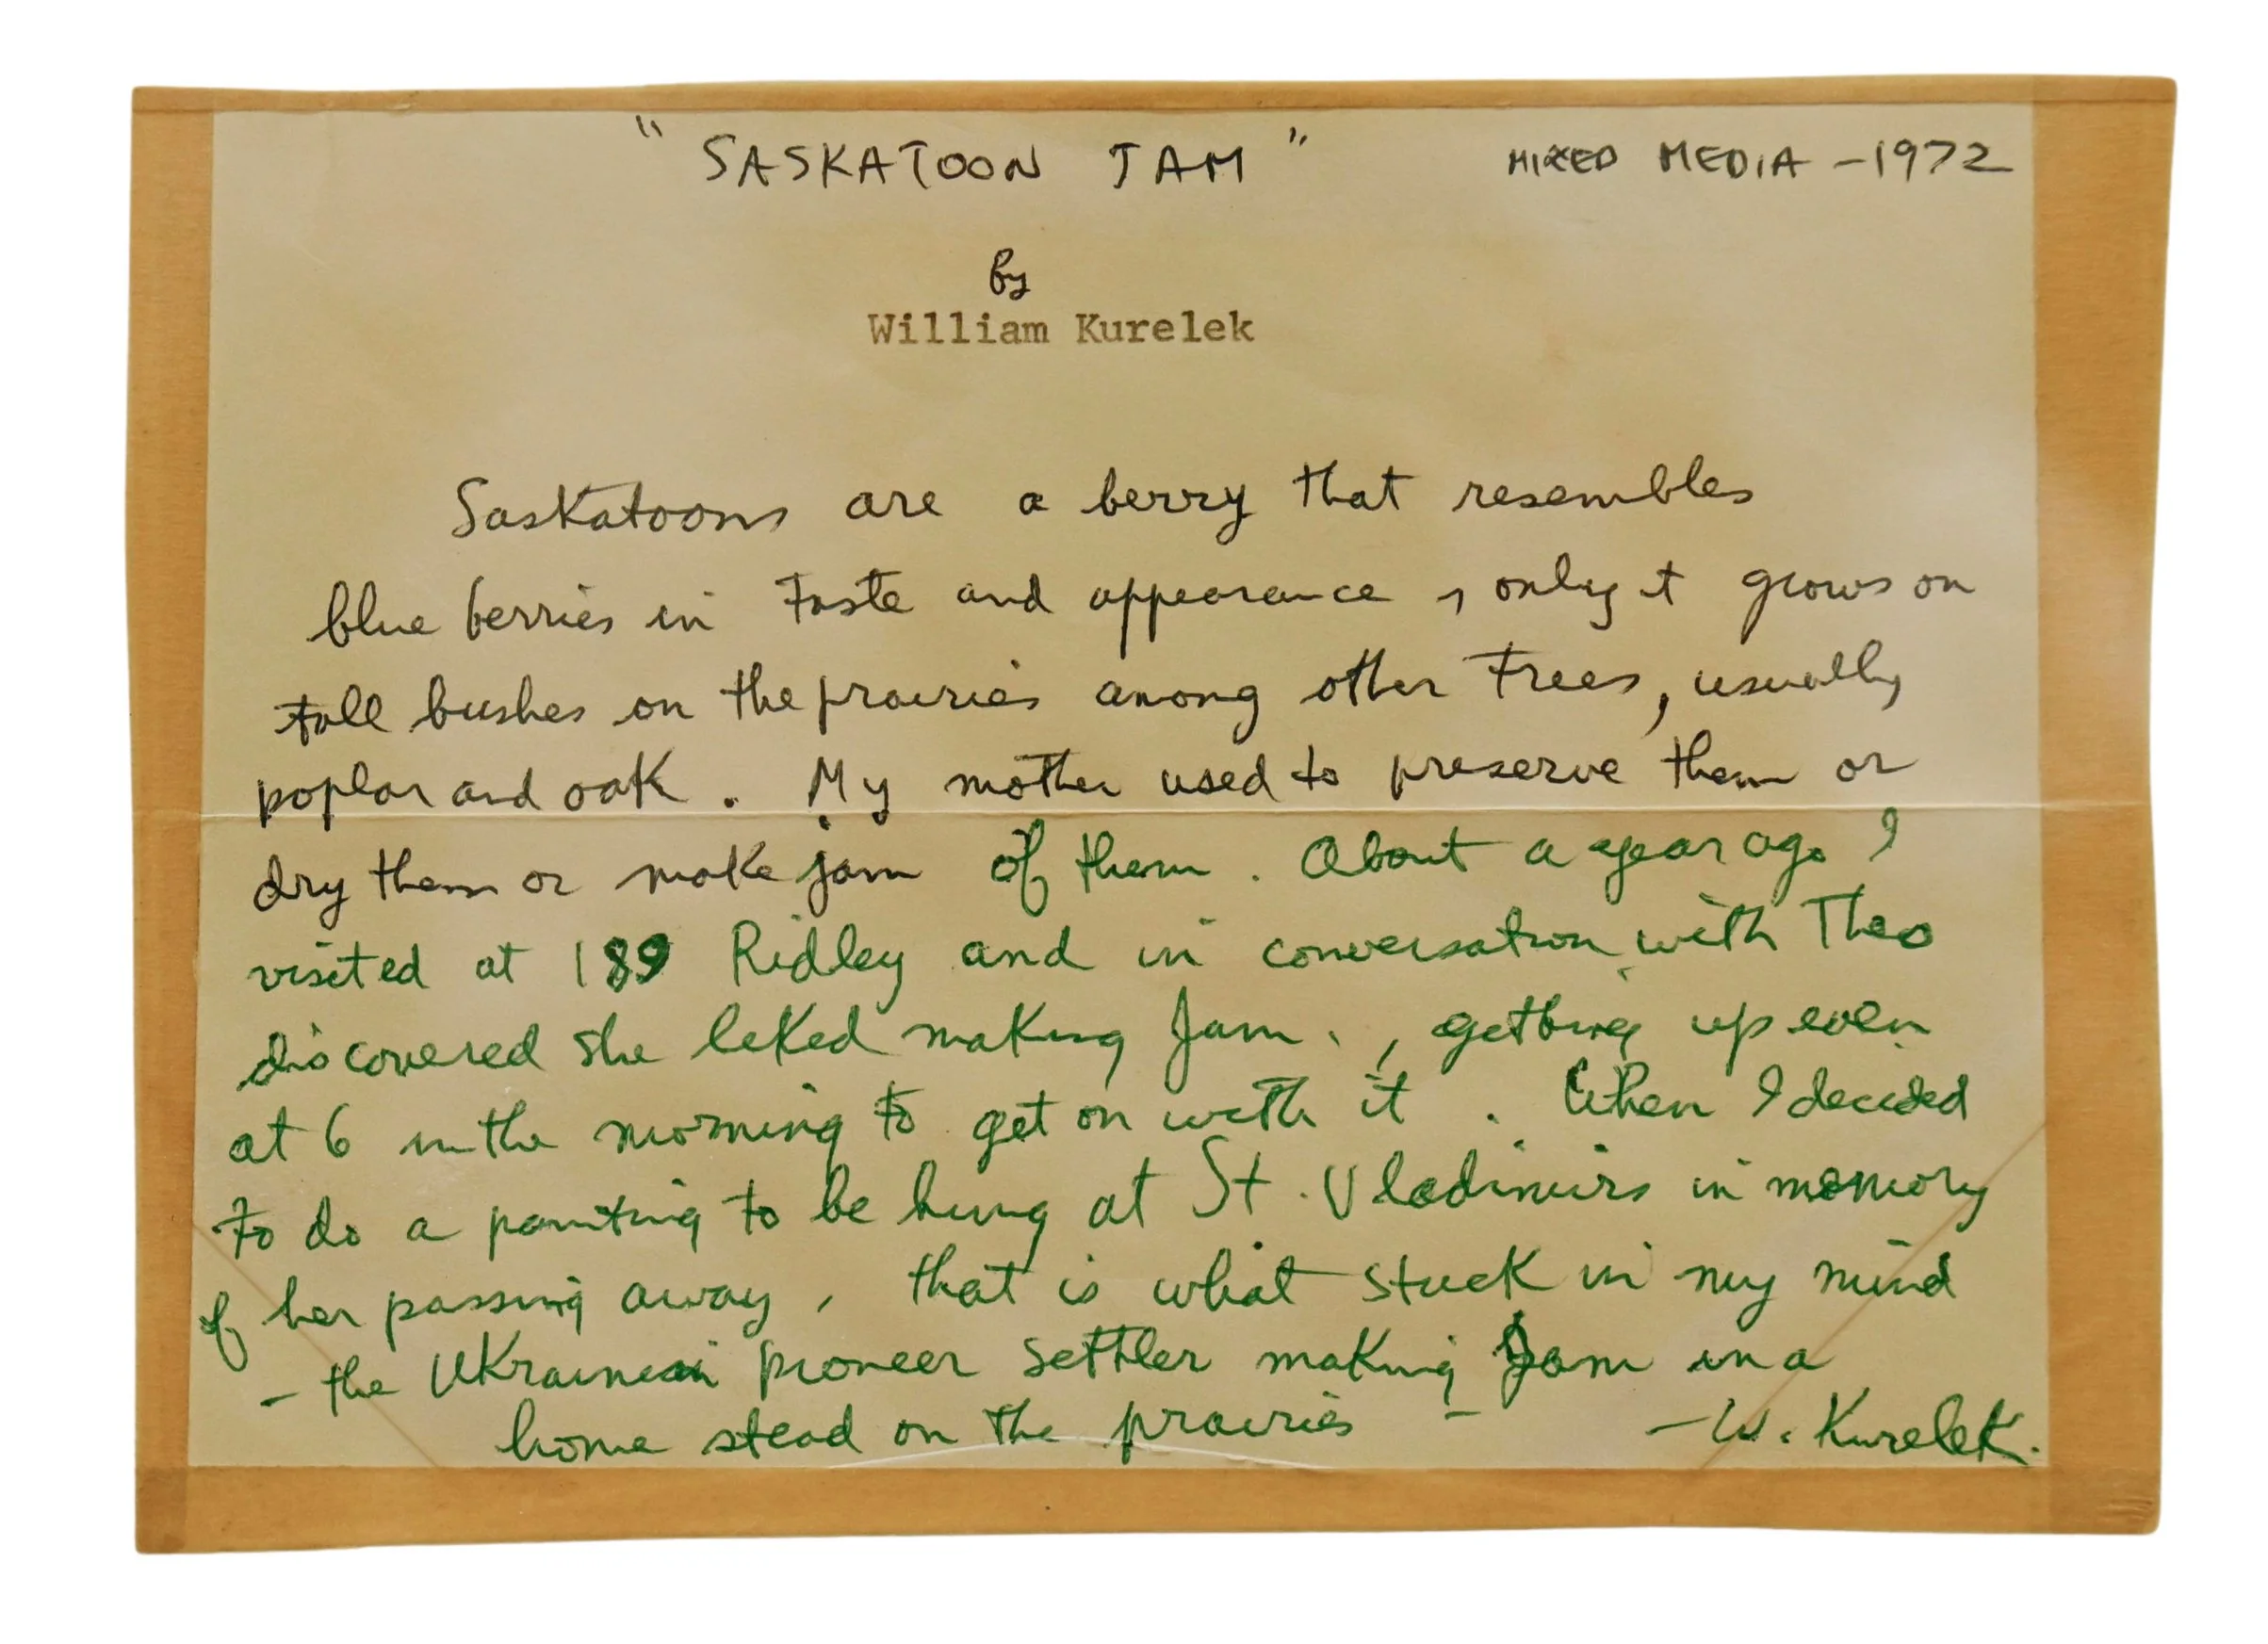 "SASKATOON JAM" MIXED MEDIA - 1972
by
William Kurelek
Saskatoons are a berry that resembles
blue berries in taste and appearance, only it grows on
tall bushes on the prairies among other trees, usually
poplar and oak. My mother used to preserve them or
dry them or make jam of them. About a year ago I
visited at 189 Ridley and in conversation with Theo
discovered she liked making Jam., getting up even
at 6 in the morning to get on with it. When I decided
to do a painting to be hung at St. Vladimirs in memory
of her passing away, that is what stuck in my mind
- the Ukrainian pioneer settler making Jam in a
home stead on the prairies - - W. Kurelek.